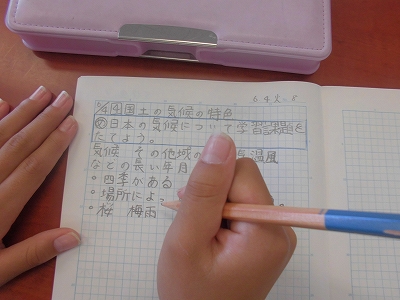 6/4 4 国土の気候の特色
め 日本の気候について学習課題を
たてよう。
気候 その地域の 気温風
などの長い年月
・四季がある
・場所によ
・桜 梅雨